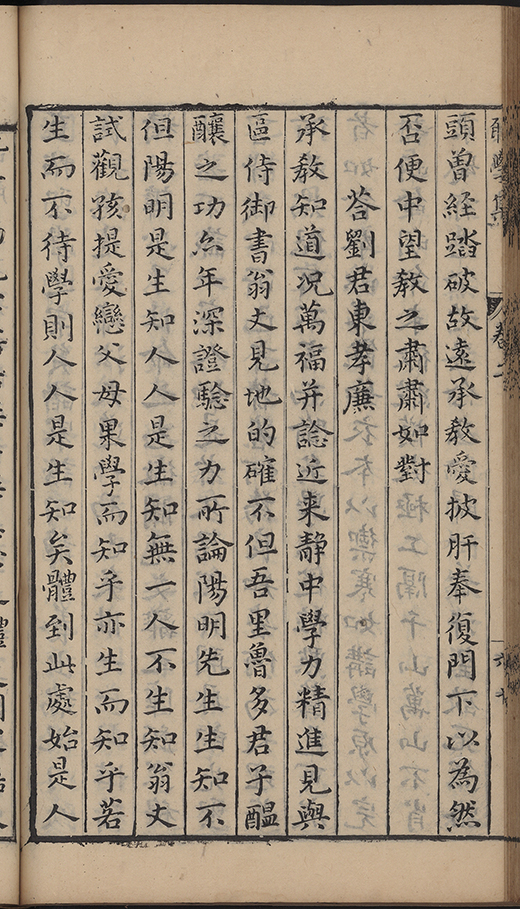 學集 卷二 六十
頭曾經踏破故遠承教愛披肝奉復門下以為然
否便中望教之肅肅如對
答劉君東孝廉
承教知道况萬福并諗近来静中學力精進見與
區侍御書翁丈見地的確不但吾里魯多君子醞
釀之功亽年深證驗之力所論陽明先生生知不
但陽明是生知人人是生知無一人不生知翁丈
試觀孩提愛戀父母果學而知乎亦生而知乎若
生而不待學則人人是生知矣體到此處始是人